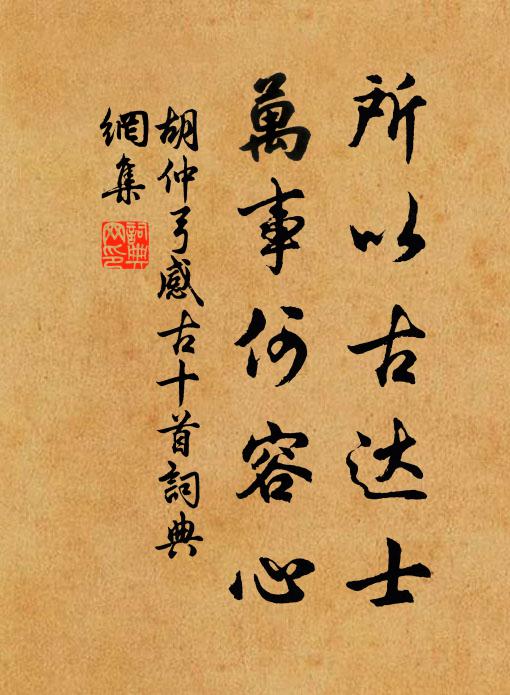 所以古达士
萬事何容心
胡仲弓感古十首詞典
網集
詞典
网印